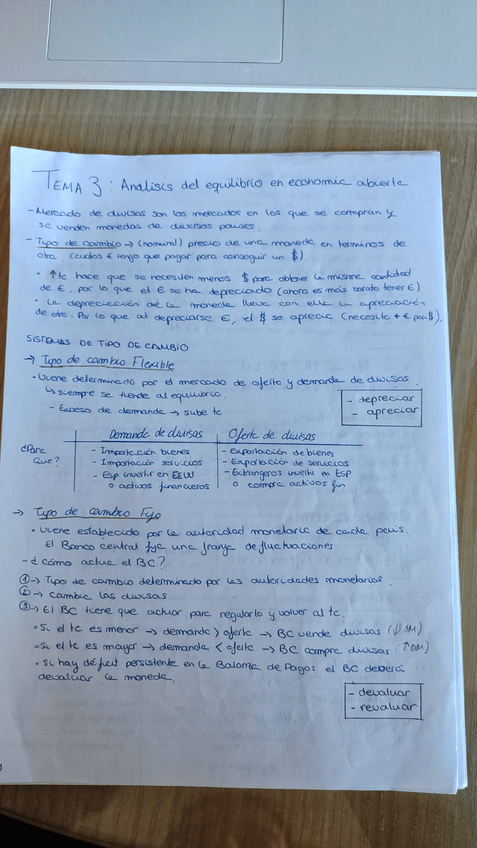 TEMA 3: Analisis del equilibrio en economia abierta
- Mercado de divisas son los mercados en los que se compran y
se venden monedas de diversos paises.
- Tipo de cambio → (nominal) precio de una moneda en terminos de
otra. (cuatos € tengo que pagar para conseguir un $)
• ↑tc hace que se necesiten menos $ para obtener la misma cantidad
de €, por lo que el € se ha depreciado (ahora es más barato tener €)
• La depreciación de la moneda lleva con ella la apreciación
de otra. Por lo que al depreciarse €, el $ se aprecia (necesito + € para $).
SISTEMAS DE TIPO DE CAMBIO
→ Tipo de cambio Flexible
• Viene determinado por el mercado de oferta y demanda de divisas.
↳ siempre se tiende al equilibrio.
- Exceso de demanda → sube tc
- depreciar
- apreciar
Demanda de divisas Oferta de divisas
¿Para que?
- Importación bienes - Exportación de bienes
- Importación servicios - Exportación de servicios
- Esp invertir en EEUU - Extranjeros invertir en Esp
o activos financieros o compra activos fin
→ Tipo de cambio Fijo
• Viene establecido por la autoridad monetaria de cada pais.
El Banco central fija una franja de fluctuaciones
- ¿Cómo actua el BC?
①→ Tipo de cambio determinado por las autoridades monetarias.
②→ Cambia las divisas
③→ El BC tiene que actuar para regularlo y volver al tc.
• Si el tc es menor → demanda > oferta → BC vende divisas (↓OM)
• Si el tc es mayor → demanda < oferta → BC compra divisas (↑OM)
• Si hay déficit persistente en la Balanza de Pagos el BC deberá
devaluar la moneda.
- devaluar
- revaluar